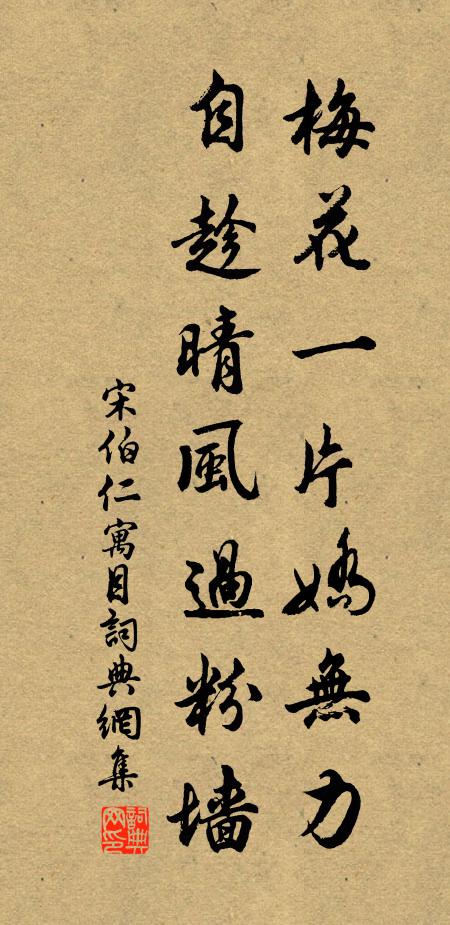 梅花一片嬌無力
自趁晴風過粉墻
宋伯仁寓目詞典網集
詞典网印